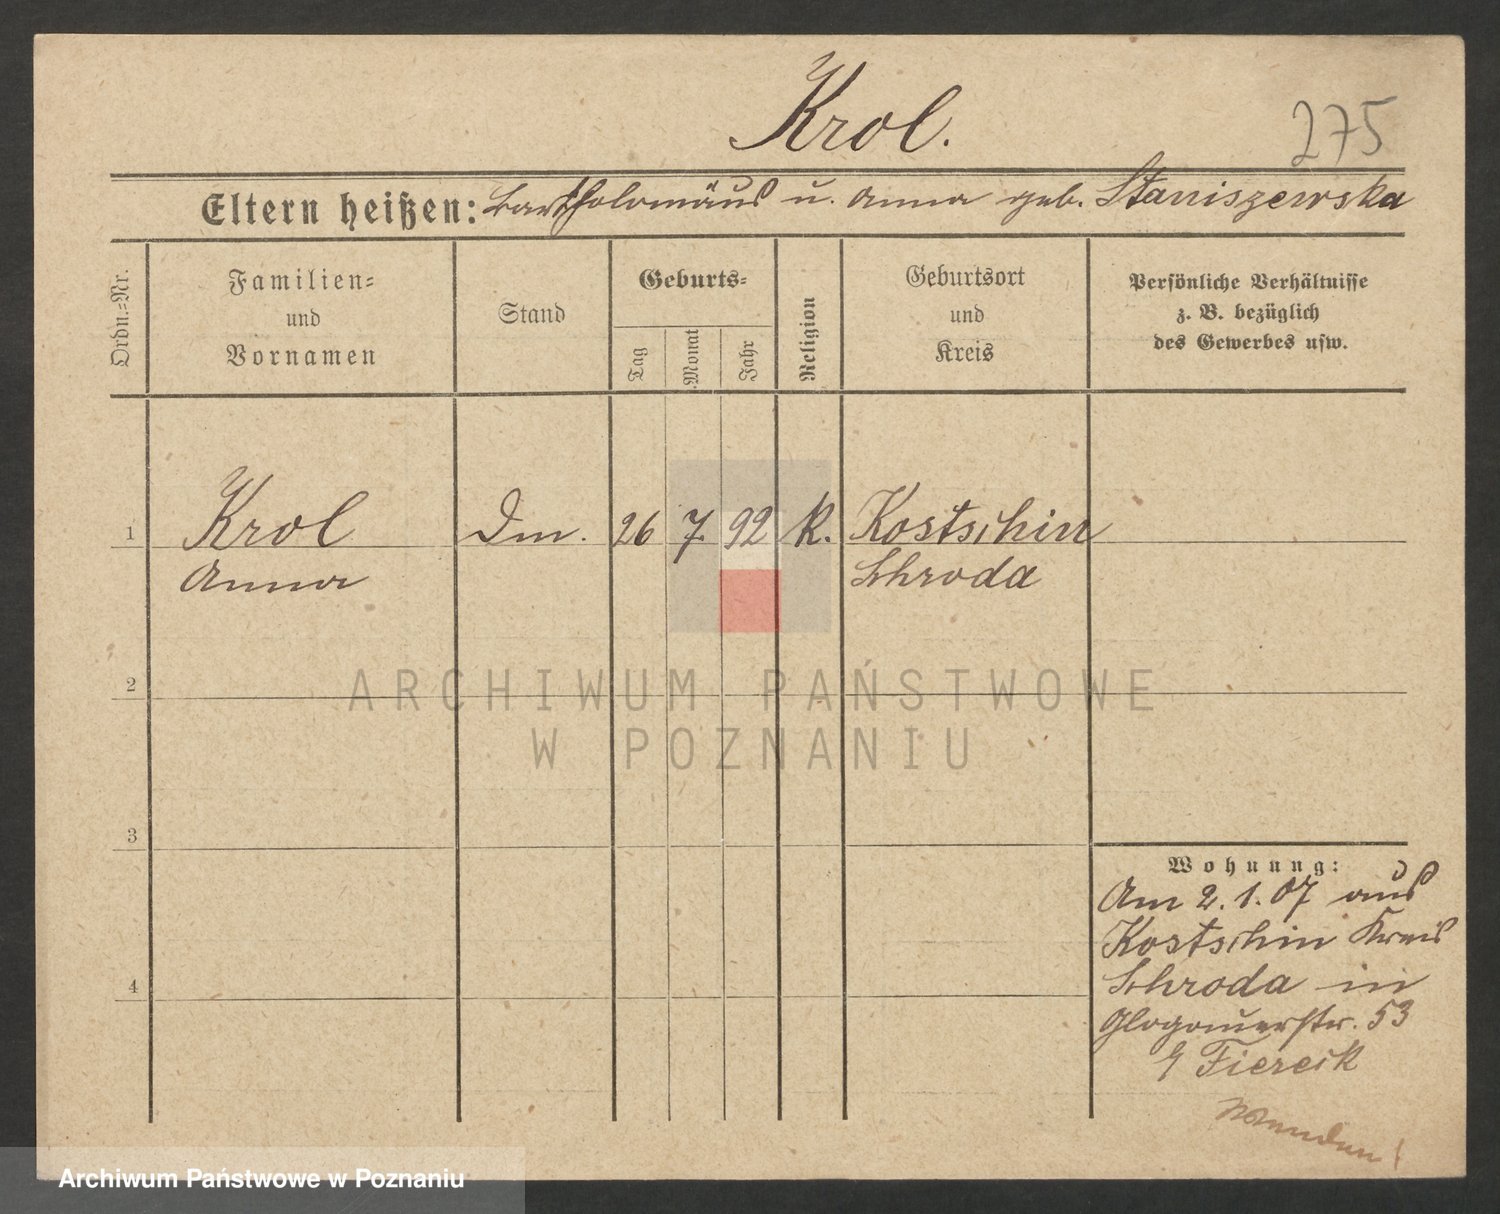 Krol.
275
Eltern heißen: Bartholomäus u. Anna geb. Staniszewska
Ordn.-Nr.
Familien-
und
Vornamen
Stand
Geburts-
Tag
Monat
Jahr
Religion
Geburtsort
und
Kreis
Persönliche Verhältnisse
z. B. bezüglich
des Gewerbes usw.
1
Krol
Dm.
26
7
92
K.
Kostschin
Anna
Schroda
2
ARCHIWUM PAŃSTWOWE
W POZNANIU
3
Wohnung:
Am 2.1.07 aus
Kostschin Kreis
4
Schroda in
Glogauerstr. 53
Fiereck
Wenden!
Archiwum Państwowe w Poznaniu